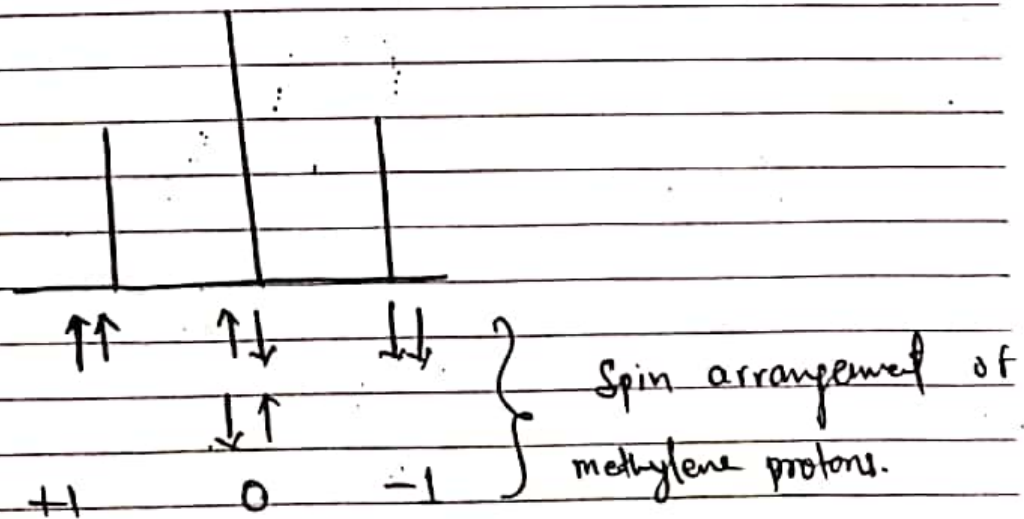 ↑↑ ↑↓ ↓↓
↓↑
Spin arrangement of
methylene protons.
+1 0 -1